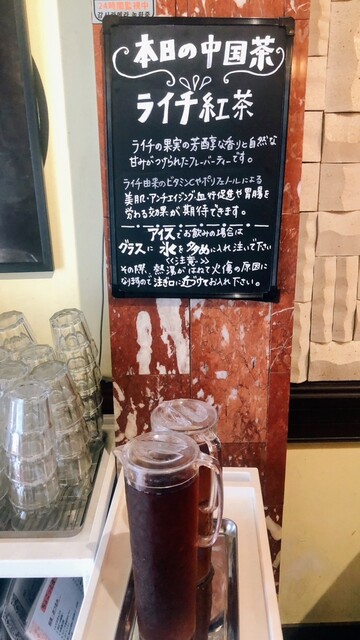 24時間監視中
本日の中国茶
ライチ紅茶
ライチの果実の芳醇な香りと自然な
甘みがつけられたフレーバーティーです。
ライチ由来のビタミンCやポリフェノールによる
美肌・アンチエイジング・血行促進や胃腸を
労わる効果が期待できます。
アイスでお飲みの場合は
グラスに氷を多めに入れ注いで下さい
<<注意>>
その際、熱湯がはねて火傷の原因に
なりますので注ぎ口に近づけてお入れ下さい。